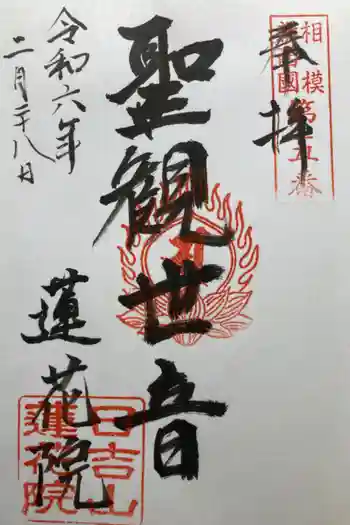 奉拝
相模
國第十五番
聖観世音
蓮花院
日吉山
蓮花院
令和六年
二月二十八日